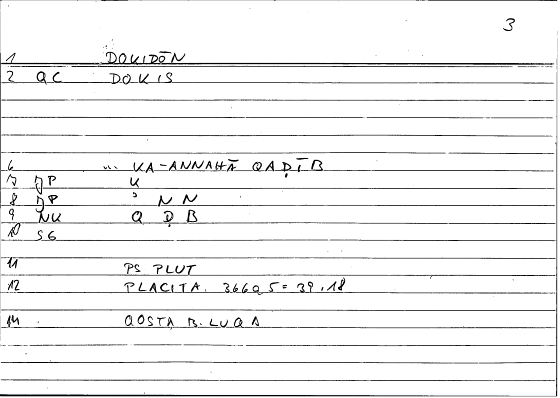 3
1 DOKIDŌN
2 QC DOKIS
6 ... KA-ANNAHĀ QAḌĪB
7 JP K
8 JP ʾ N N
9 NK Q Ḍ B
10 SG
11 PS PLUT
12 PLACITA. 366a5 = 39,18
14 QOSTA B. LUQA